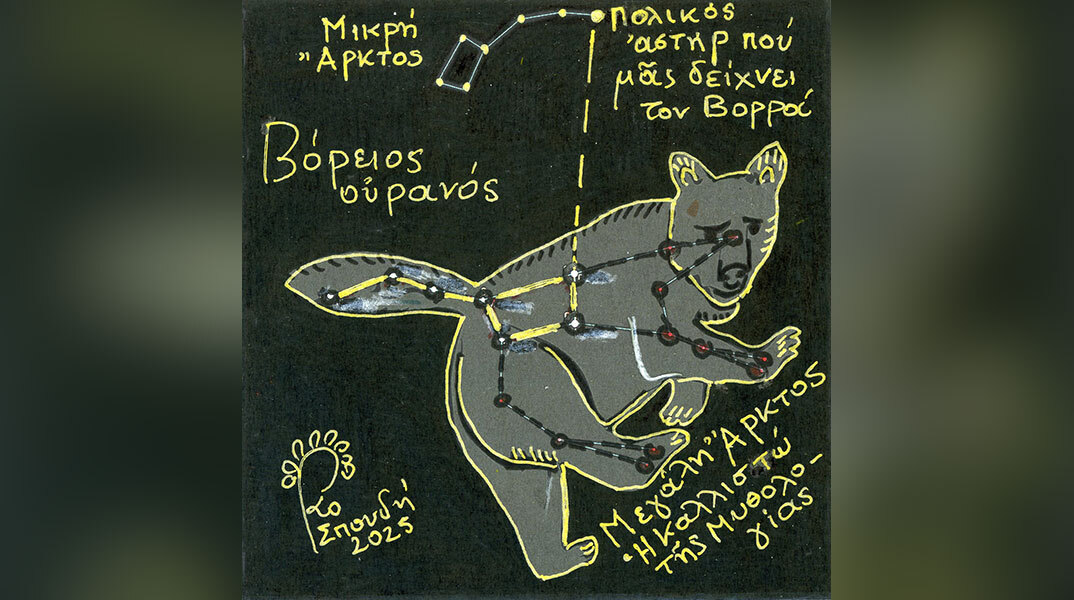 Μικρή
Ἄρκτος
Πολικός
ἀστήρ πού
μᾶς δείχνει
τον Βορρά
Βόρειος
οὐρανός
Μεγάλη Ἄρκτος
Ἡ Καλλιστώ
τῆς Μυθολο-
γίας
Σπουδή
2025